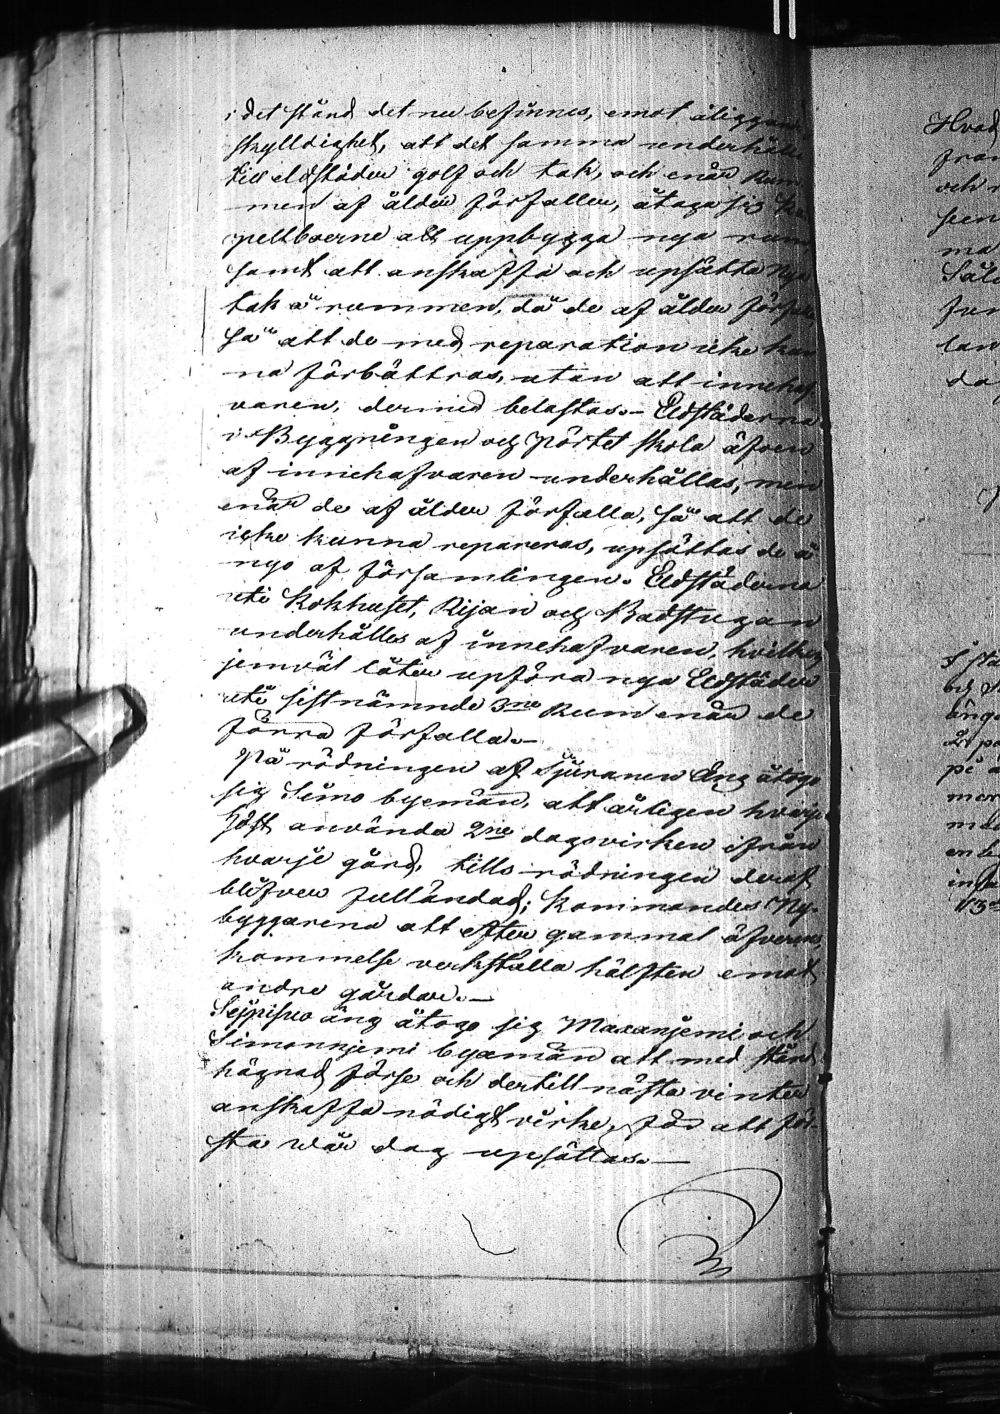 i det stånd det nu befinnes, emot åliggan
skylldighet, att det samma underhålla
till eldstäder golf och tak, och enär Rum
men af ålder förfaller, åtaga sig Ka
pellboerne att uppbygga nya rum
samt att anskaffa och upsätta nya
tak å rummen, då de af ålder förfalla
så att de med reparation icke kun
na förbättras, utan att innehaf
varen, dermed belastas.- Eldstäderna
i Byggningen och pörtet skola äfven
af innehafvaren underhållas, men
enär de af ålder förfalla, så att de
icke kunna repareras, upsättas de å
nyo af församlingen. Eldstäderna
uti Kokhuset, Rijan och Badstugan
underhålles af innehafvaren, hvilken
jemväl låter upföra nya Eldstäder
uti sistnämnde 3ne Rum enär de
förra förfalla.-
På rödningen af Sjuranen Äng åtogo
sig Simo byemän, att årligen hvarje
höst använda 2ne dagsvirken ifrån
hvarje gård, tills rödningen deraf
blifver fulländad; Kommandes Ny-
byggarena att efter gammal äfverens
kommelse verkställa hälften emot
andra gårdar.-
äng åtogo sig Maxanjemi och
Simonnjemi byamän att med stånd
hägnad förse och dertill nästa vinter
anskaffa nödigt virke, för att för-
sta wår dag upsättas.-
Hvad
fra
och
sen
ma
Säl
för
lan
da